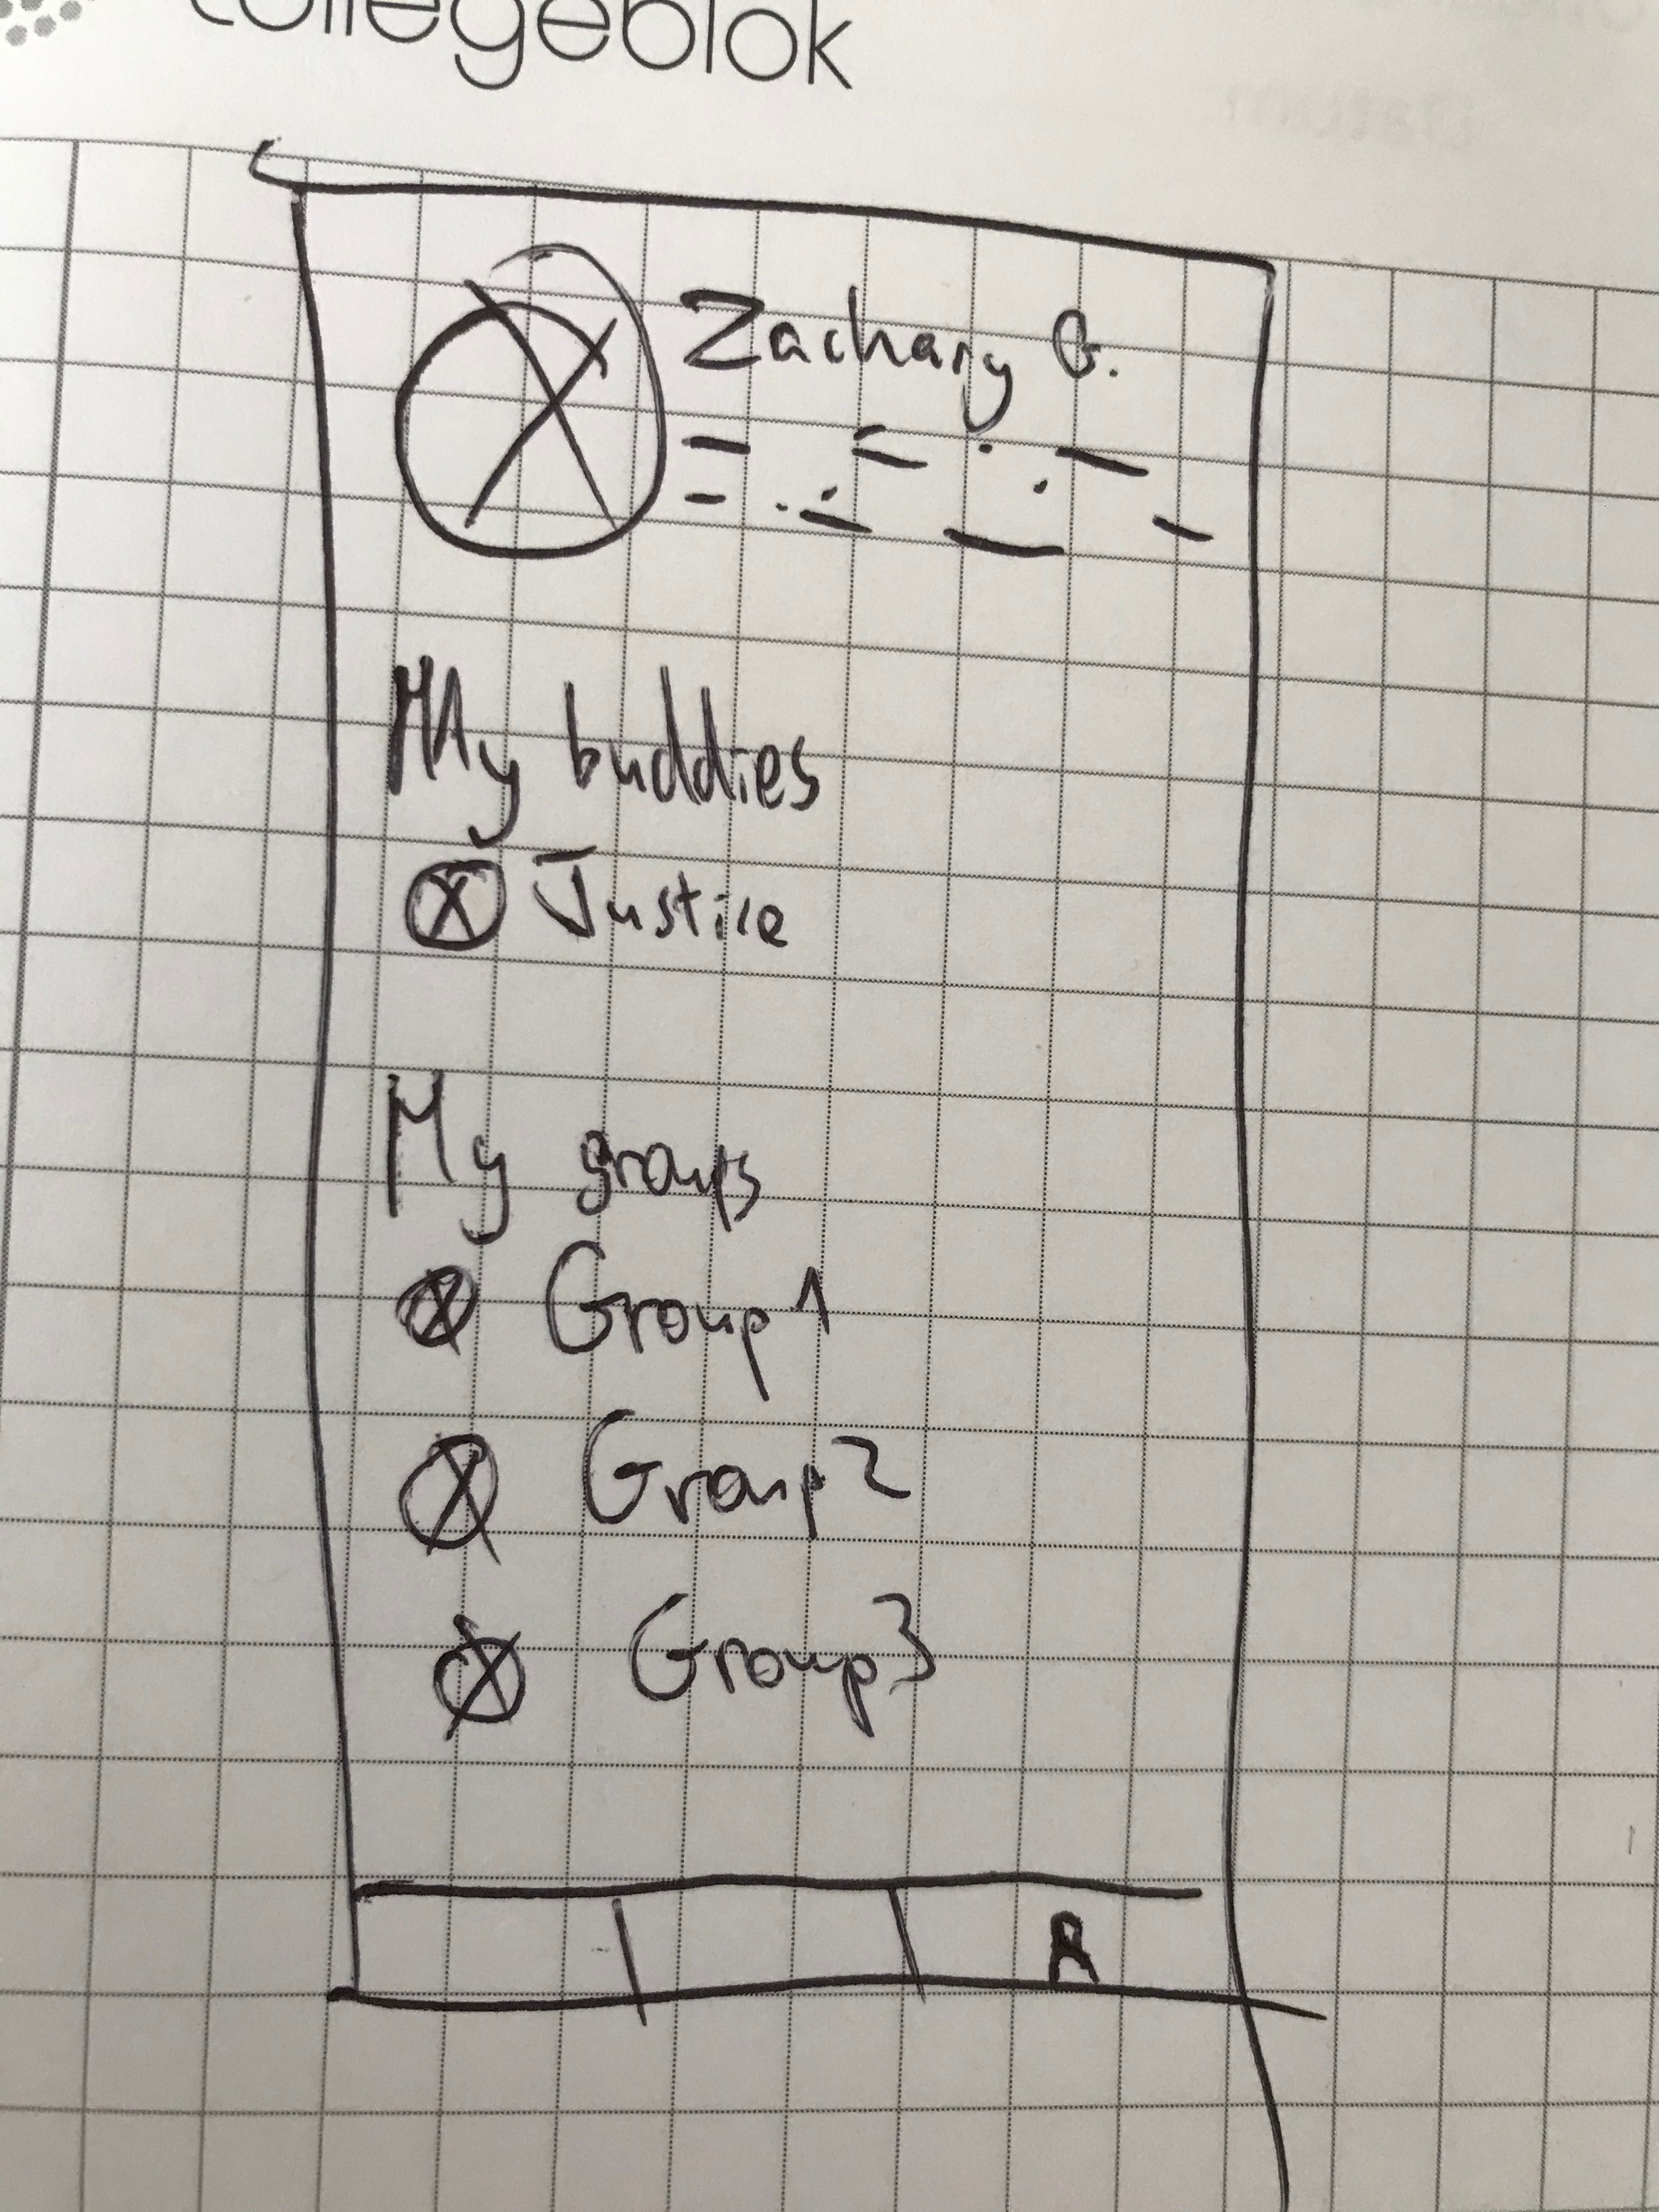 collegeblok
Zachary G.
My buddies
Justice
My groups
Group 1
Group 2
Group 3